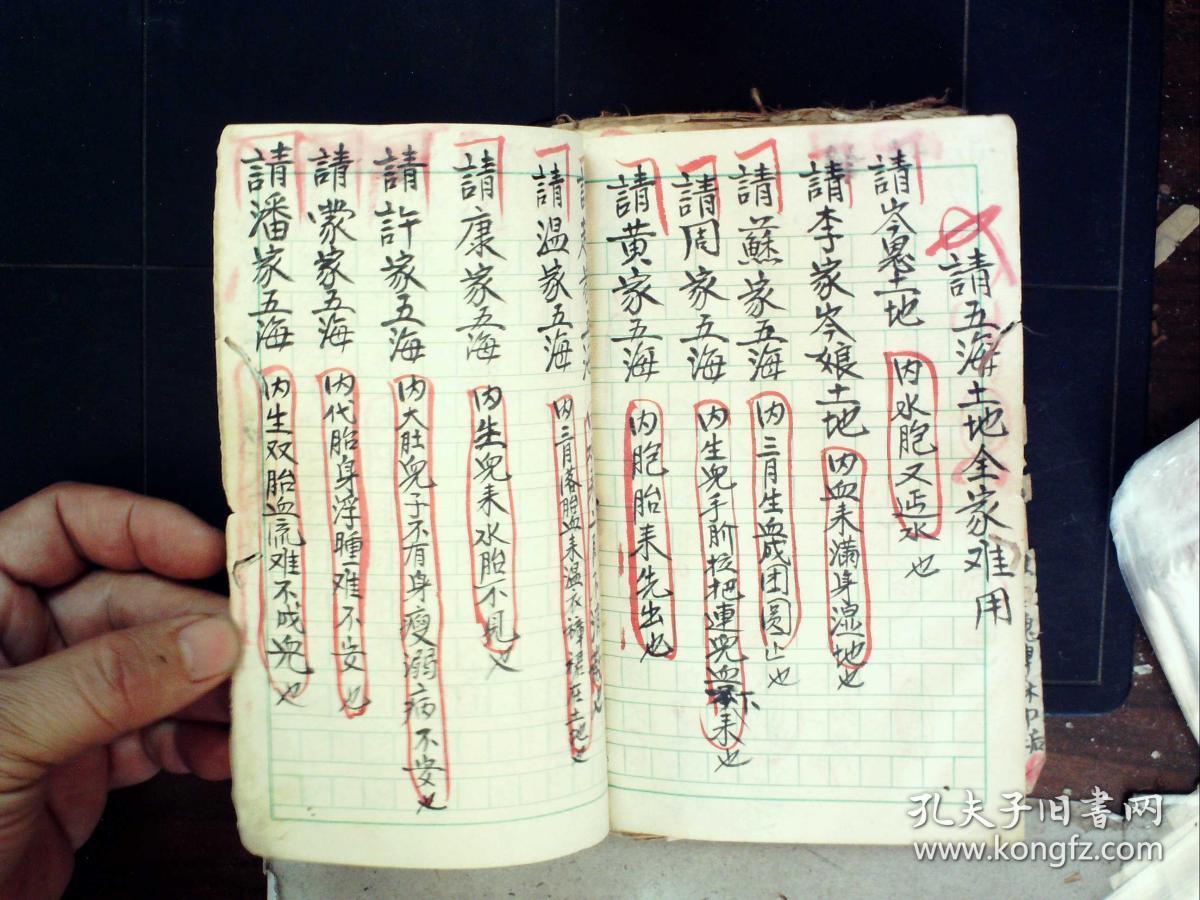 請五海土地全家难用
請岑墨土地 内水胞又正水也
請李家岑娘土地 内血来满身湿地也
請蘇家五海 内三月生血成团圆止也
請周家五海 内生児手前拉把連児血下来也
請黄家五海 内胞胎来先出也
請温家五海 内三月落胎血来温衣裙在土地也
請康家五海 内生児来水胎不見也
請許家五海 内大肚児子不有身瘦溺病不安也
請蒙家五海 内代胎身浮腫难不安也
請潘家五海 内生双胎血流难不成児也
孔夫子旧书网
www.kongfz.com